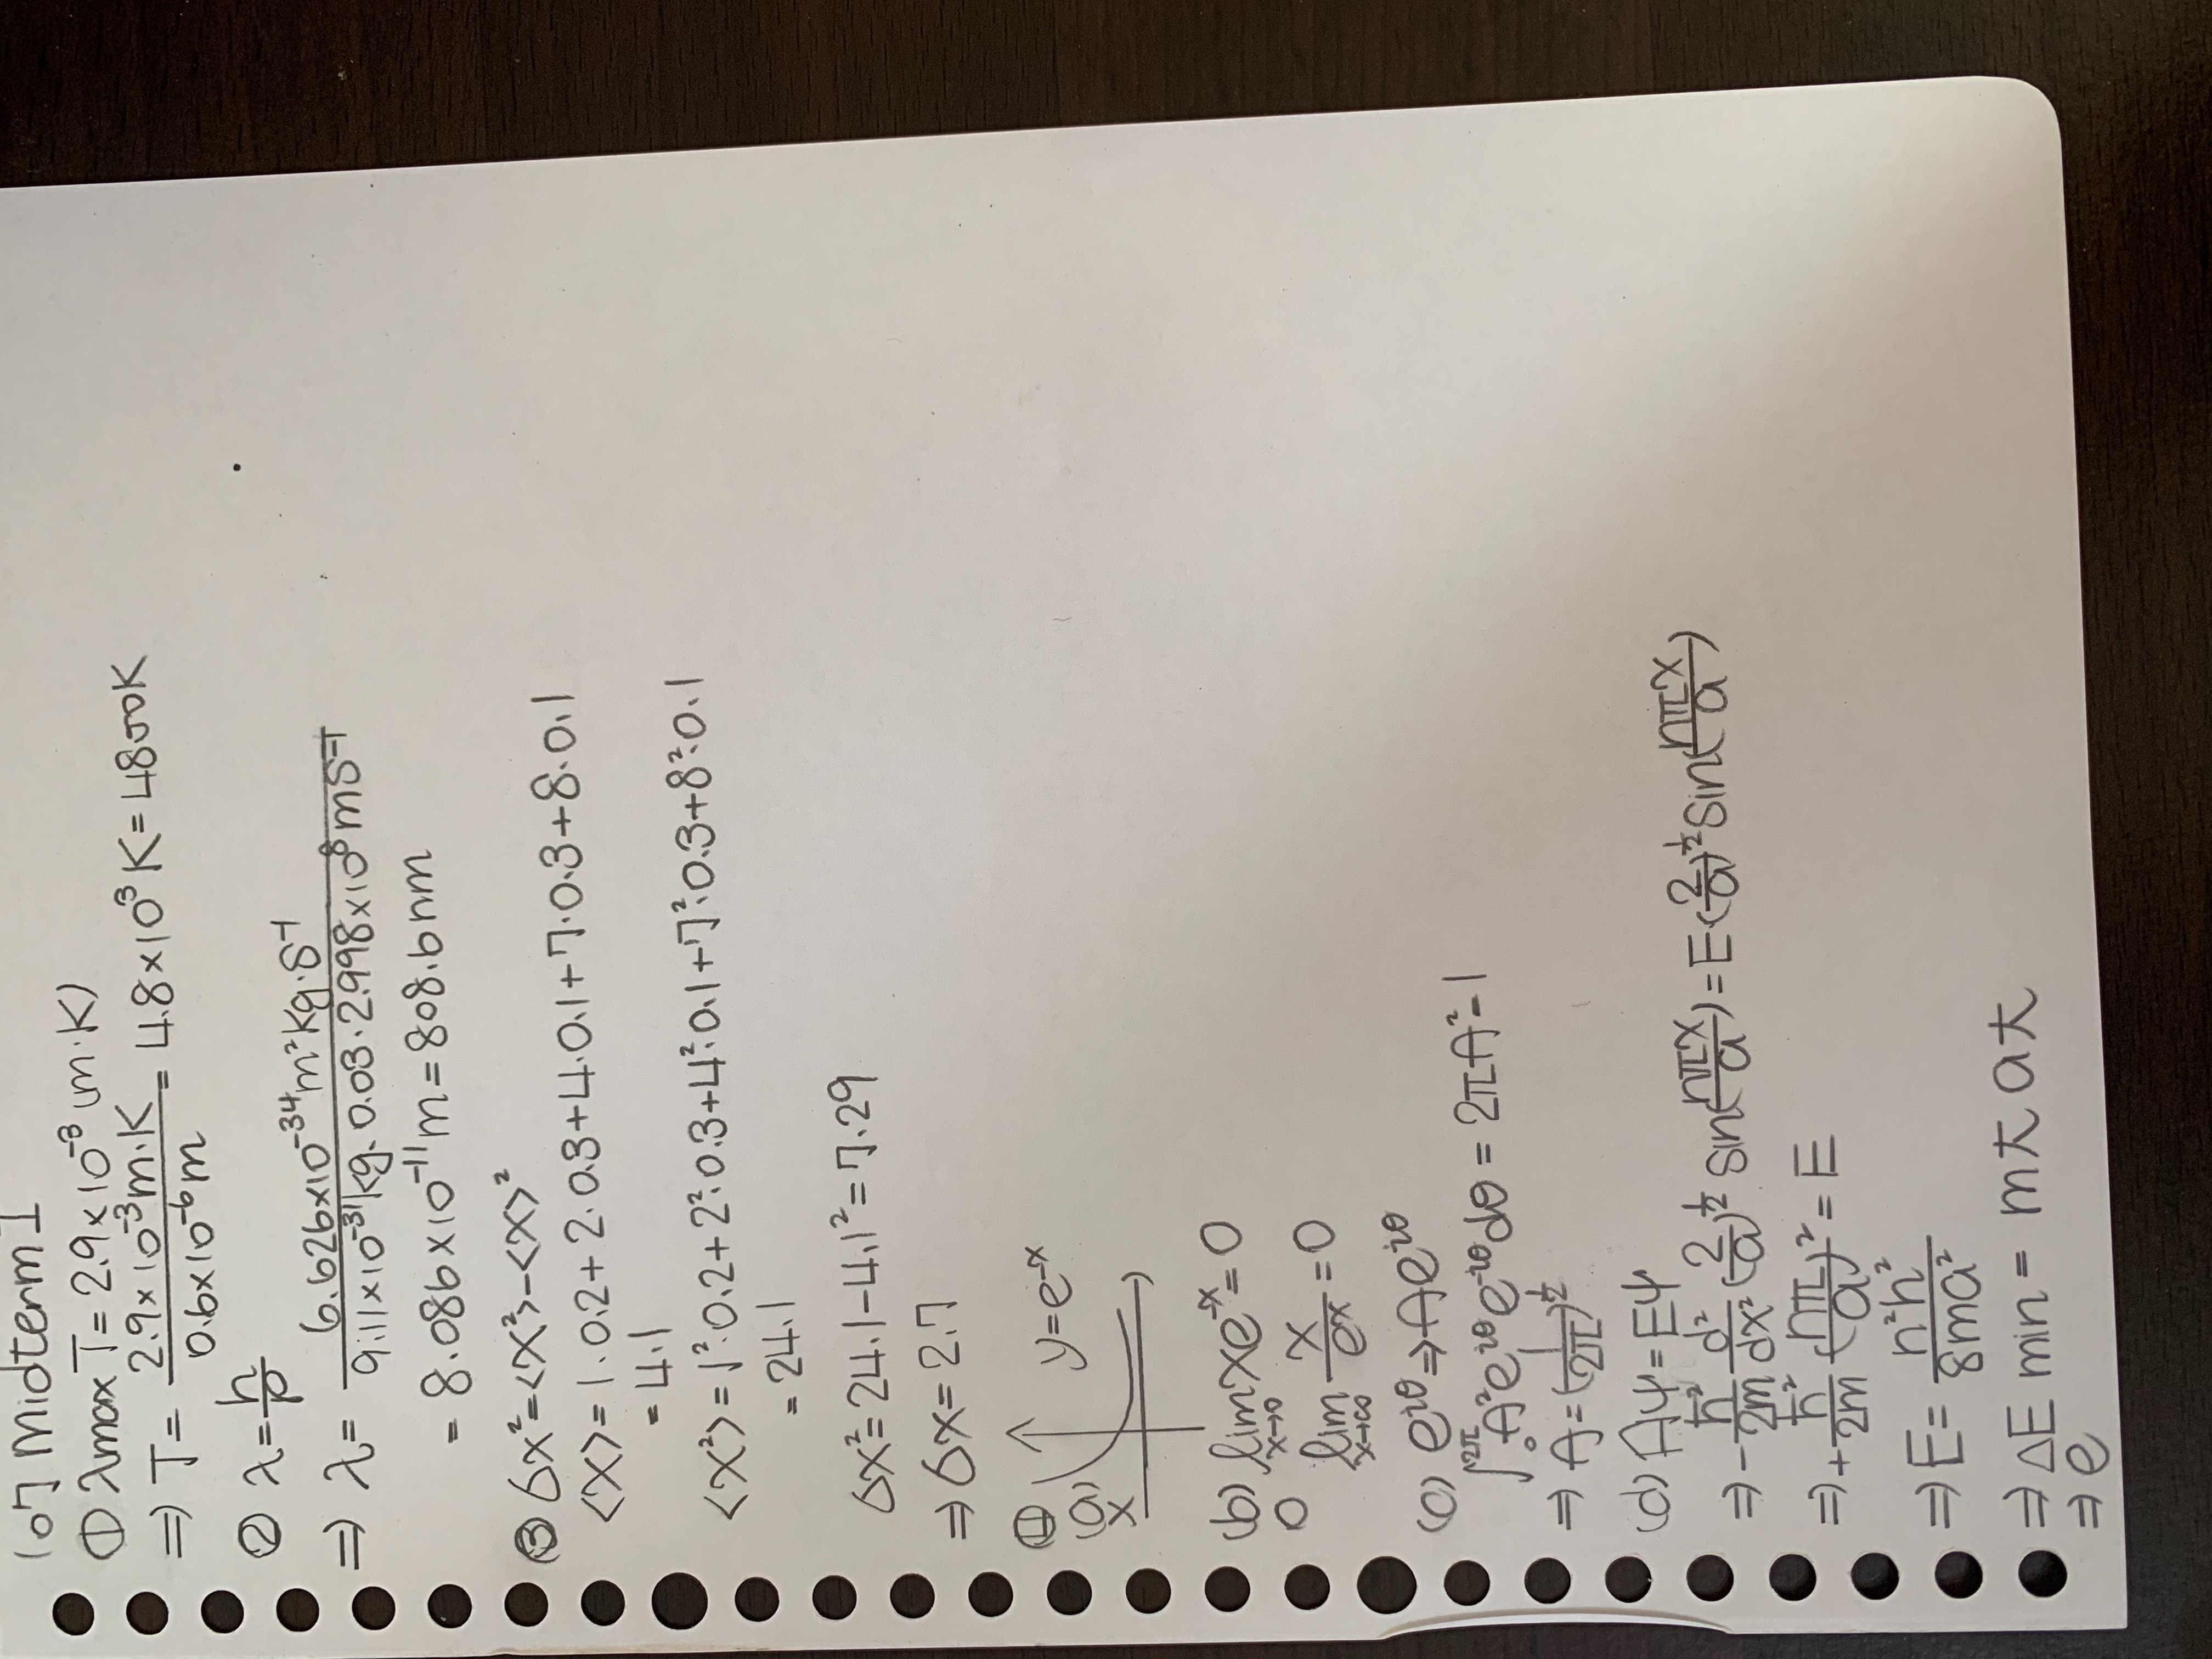 107 Midterm I
① λmax T = 2.9×10⁻³ (m·K)
⇒ T = 2.9×10⁻³m·K / 0.6×10⁻⁶m = 4.8×10³K = 4800K
② λ = h/p
⇒ λ = 6.626×10⁻³⁴m²kg·s⁻¹ / 9.11×10⁻³¹kg·0.03·2.998×10⁸ms⁻¹
= 8.086×10⁻¹¹m = 808.6nm
③ σx² = <x²>-<x>²
<x> = 1·0.2+2·0.3+4·0.1+7·0.3+8·0.1
= 4.1
<x²> = 1²·0.2+2²·0.3+4²·0.1+7²·0.3+8²·0.1
= 24.1
σx² = 24.1-4.1² = 7.29
⇒ σx = 2.7
④
(a) y=e⁻ˣ
X
(b) lim x→0 xe⁻ˣ = 0
O
lim x→∞ x/eˣ = 0
(c) e^iθ ⇒ Ae^iθ
∫₀^2π A²e^iθ e^-iθ dθ = 2πA² = 1
⇒ A = (1/2π)^½
(d) Ĥψ = Eψ
⇒ -ħ²/2m d²/dx² (2/a)^½ sin(nπx/a) = E(2/a)^½ sin(nπx/a)
⇒ +ħ²/2m (nπ/a)² = E
⇒ E = n²h²/8ma²
⇒ ΔE min = m大 a大
⇒ e